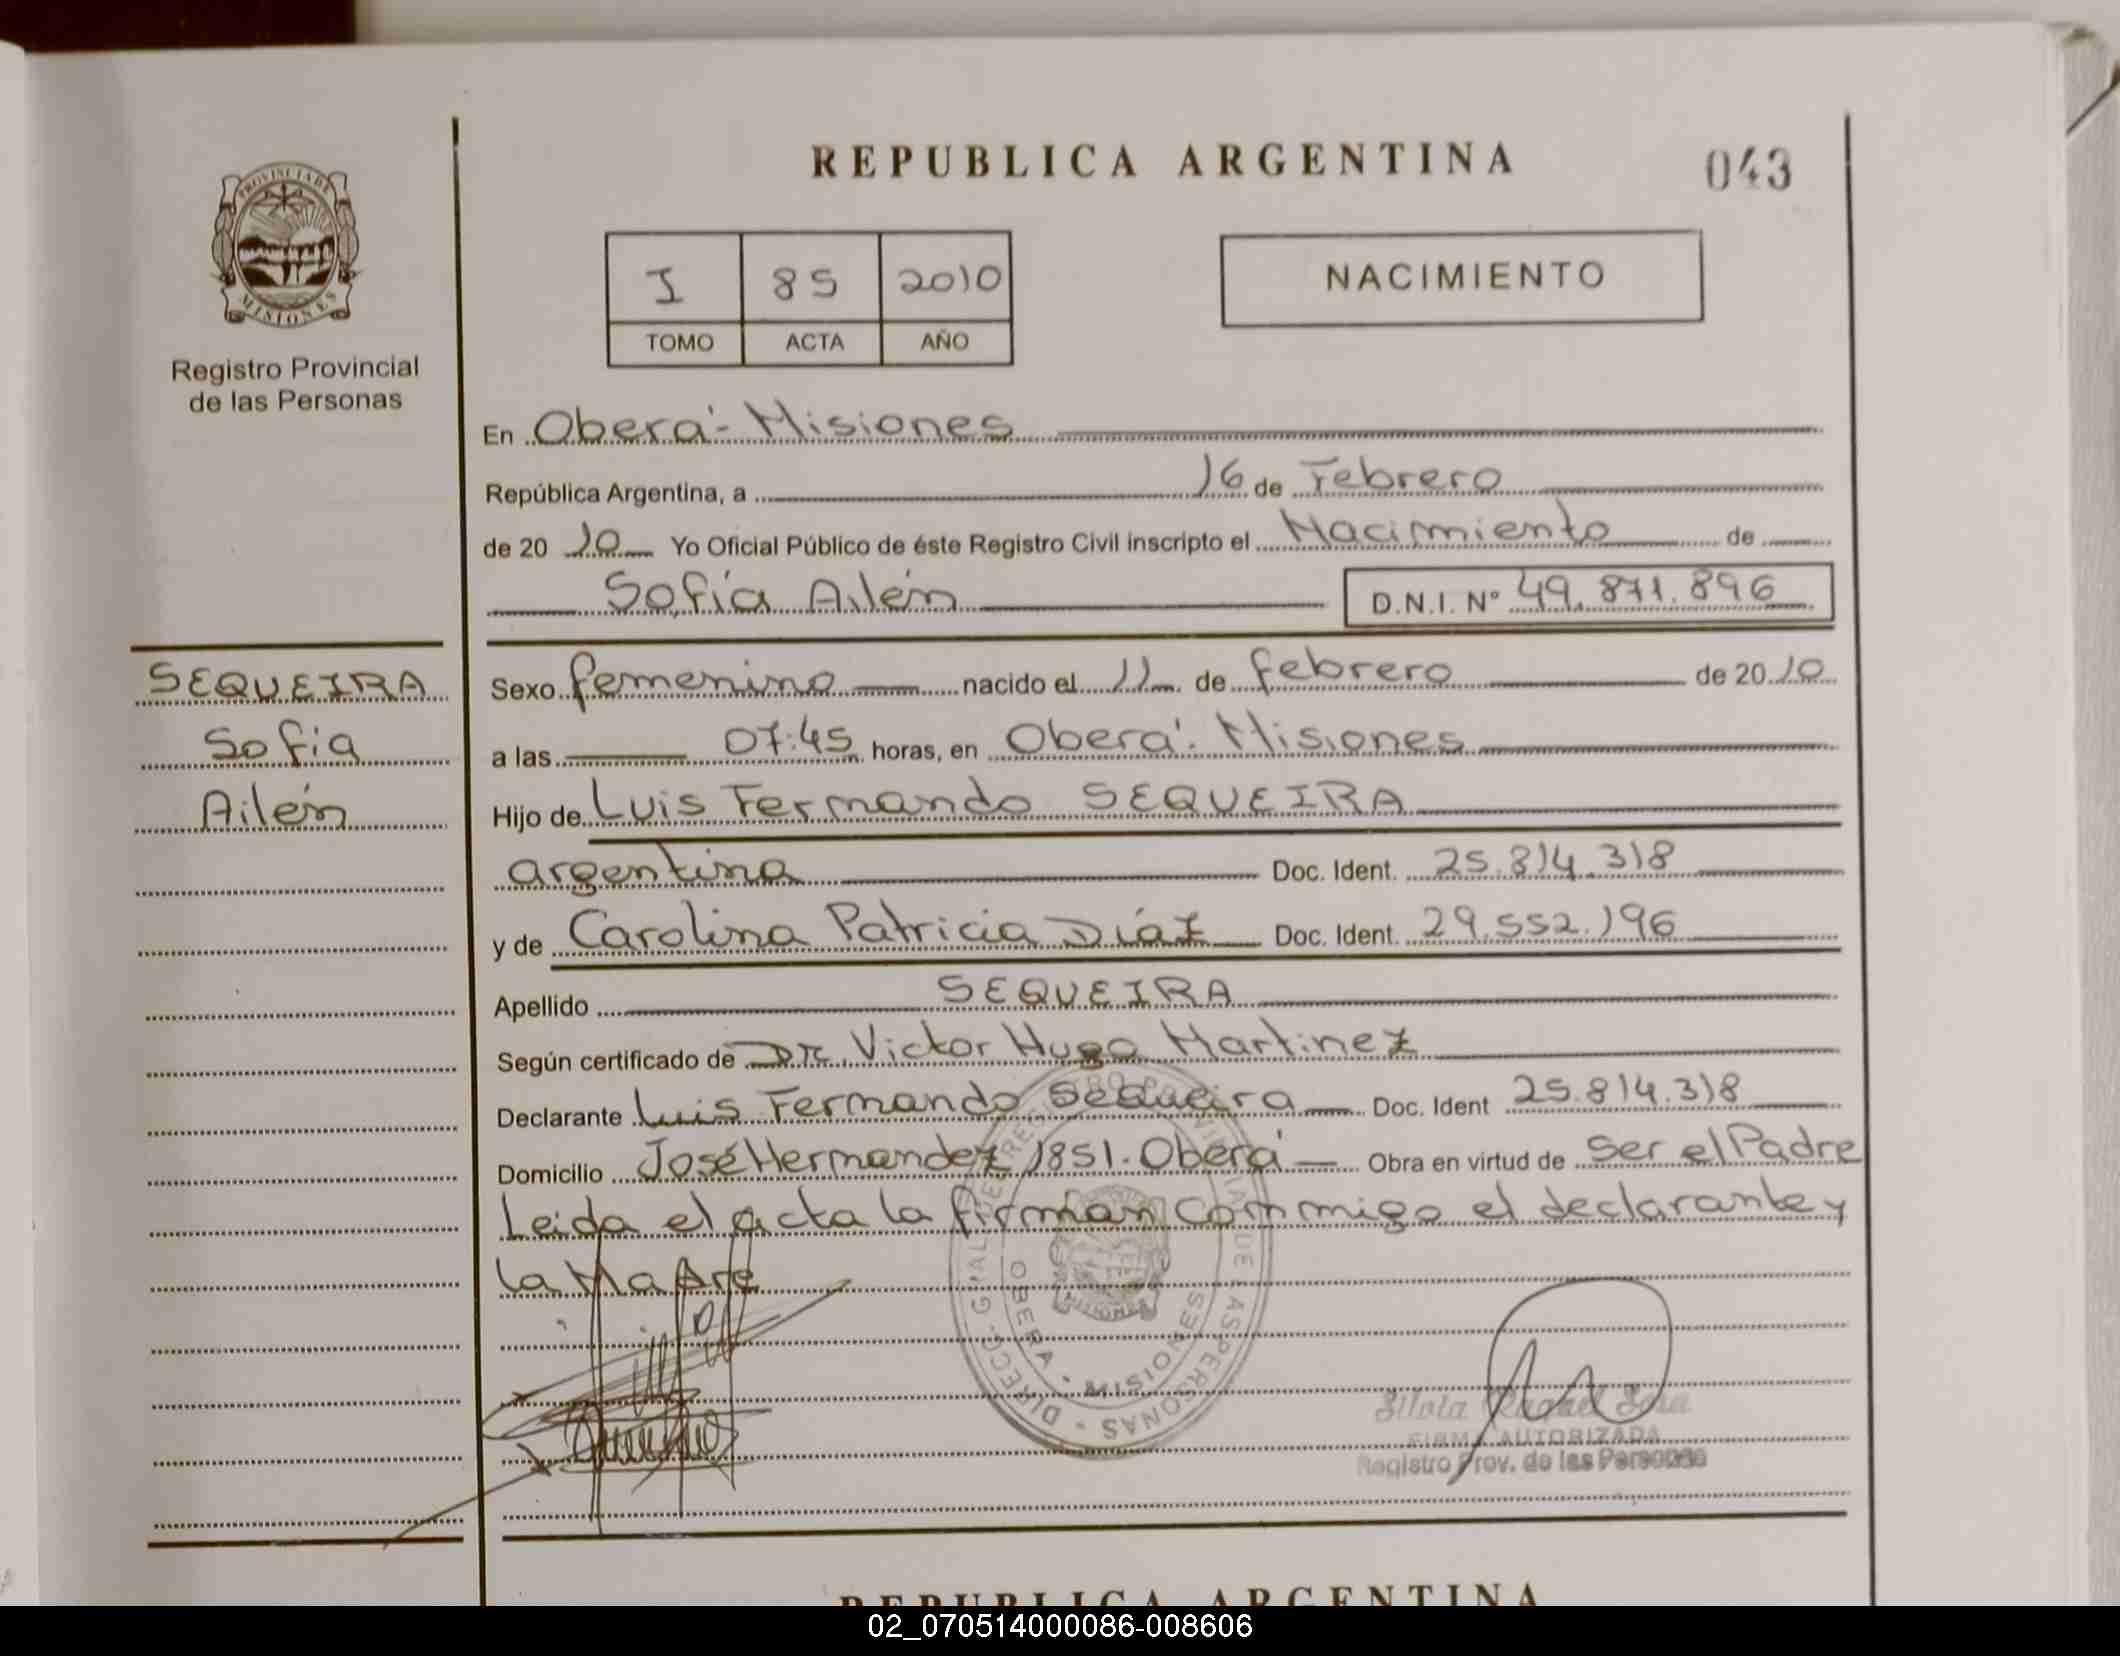 REPUBLICA ARGENTINA
043
PROVINCIA DE
MISIONES
Registro Provincial
de las Personas
I 85 2010
TOMO ACTA AÑO
NACIMIENTO
En Oberá - Misiones
República Argentina, a 16 de Febrero
de 20 10 Yo Oficial Público de éste Registro Civil inscripto el Nacimiento de
Sofía Ailén D.N.I. Nº 49.871.896
SEQUEIRA
Sofía
Ailén
Sexo femenino nacido el 11 de febrero de 20 10
a las 07:45 horas, en Oberá - Misiones
Hijo de Luis Fernando SEQUEIRA
argentina Doc. Ident. 25.814.318
y de Carolina Patricia Díaz Doc. Ident. 29.552.196
Apellido SEQUEIRA
Según certificado de Dr. Victor Hugo Martinez
Declarante Luis Fernando Sequeira Doc. Ident 25.814.318
Domicilio José Hernandez 1851 - Oberá Obra en virtud de ser el Padre
Leida el acta la firman conmigo el declarante y
la Madre
OBERA - MISIONES
FIRMA AUTORIZADA
Registro Prov. de las Personas
REPUBLICA ARGENTINA
02_070514000086-008606